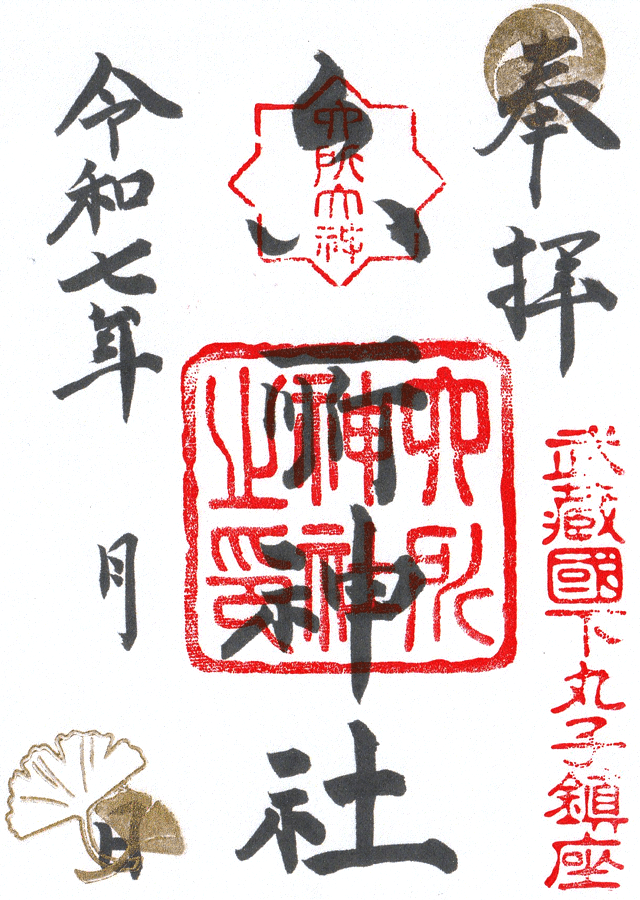 奉拝
武藏國下丸子鎮座
六所神社
六所大神
六所神社之印
令和七年 月 日